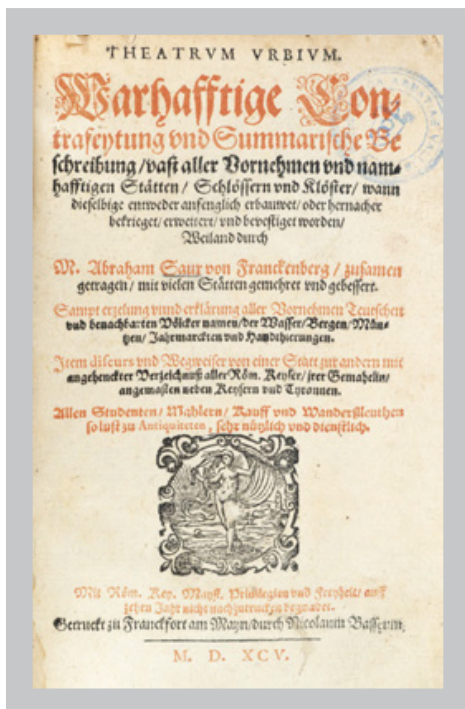 THEATRVM VRBIVM.
Warhafftige Con-
trafeytung vnd Summarische Be
schreibung / vast aller Vornehmen vnd nam-
hafftigen Stätten / Schlössern vnd Klöster / wann
dieselbige entweder anfenglich erbauwet / oder hernacher
bekrieget / erweitert / vnd bevestiget worden /
Weiland durch
M. Abraham Saur von Franckenberg / zusamen
getragen / mit vielen Stätten gemehret vnd gebessert.
Sampt erzelung vnnd erklärung aller Vornehmen Teutschen
vnd benachbarten Völcker namen / der Wasser / Bergen / Mün-
tzen / Jahrmarckten vnd Handthierungen.
Item discurs vnd Wegweiser von einer Statt zur andern mit
angehenckter Verzeichnuß aller Röm. Keyser / jrer Gemahelin /
angemaßten neben Keysern vnd Tyrannen.
Allen Studenten / Mahlern / Kauff vnd Wandersleuthen
so lust zu Antiquiteten, sehr nützlich vnd dienstlich.
Mit Röm. Key. Mayst. Privilegien vnd Freyheit / auff
zehen Jahr nicht nachzutrucken begnadet.
Getruckt zu Franckfort am Mayn / durch Nicolaum Bassæum.
M. D. XCV.